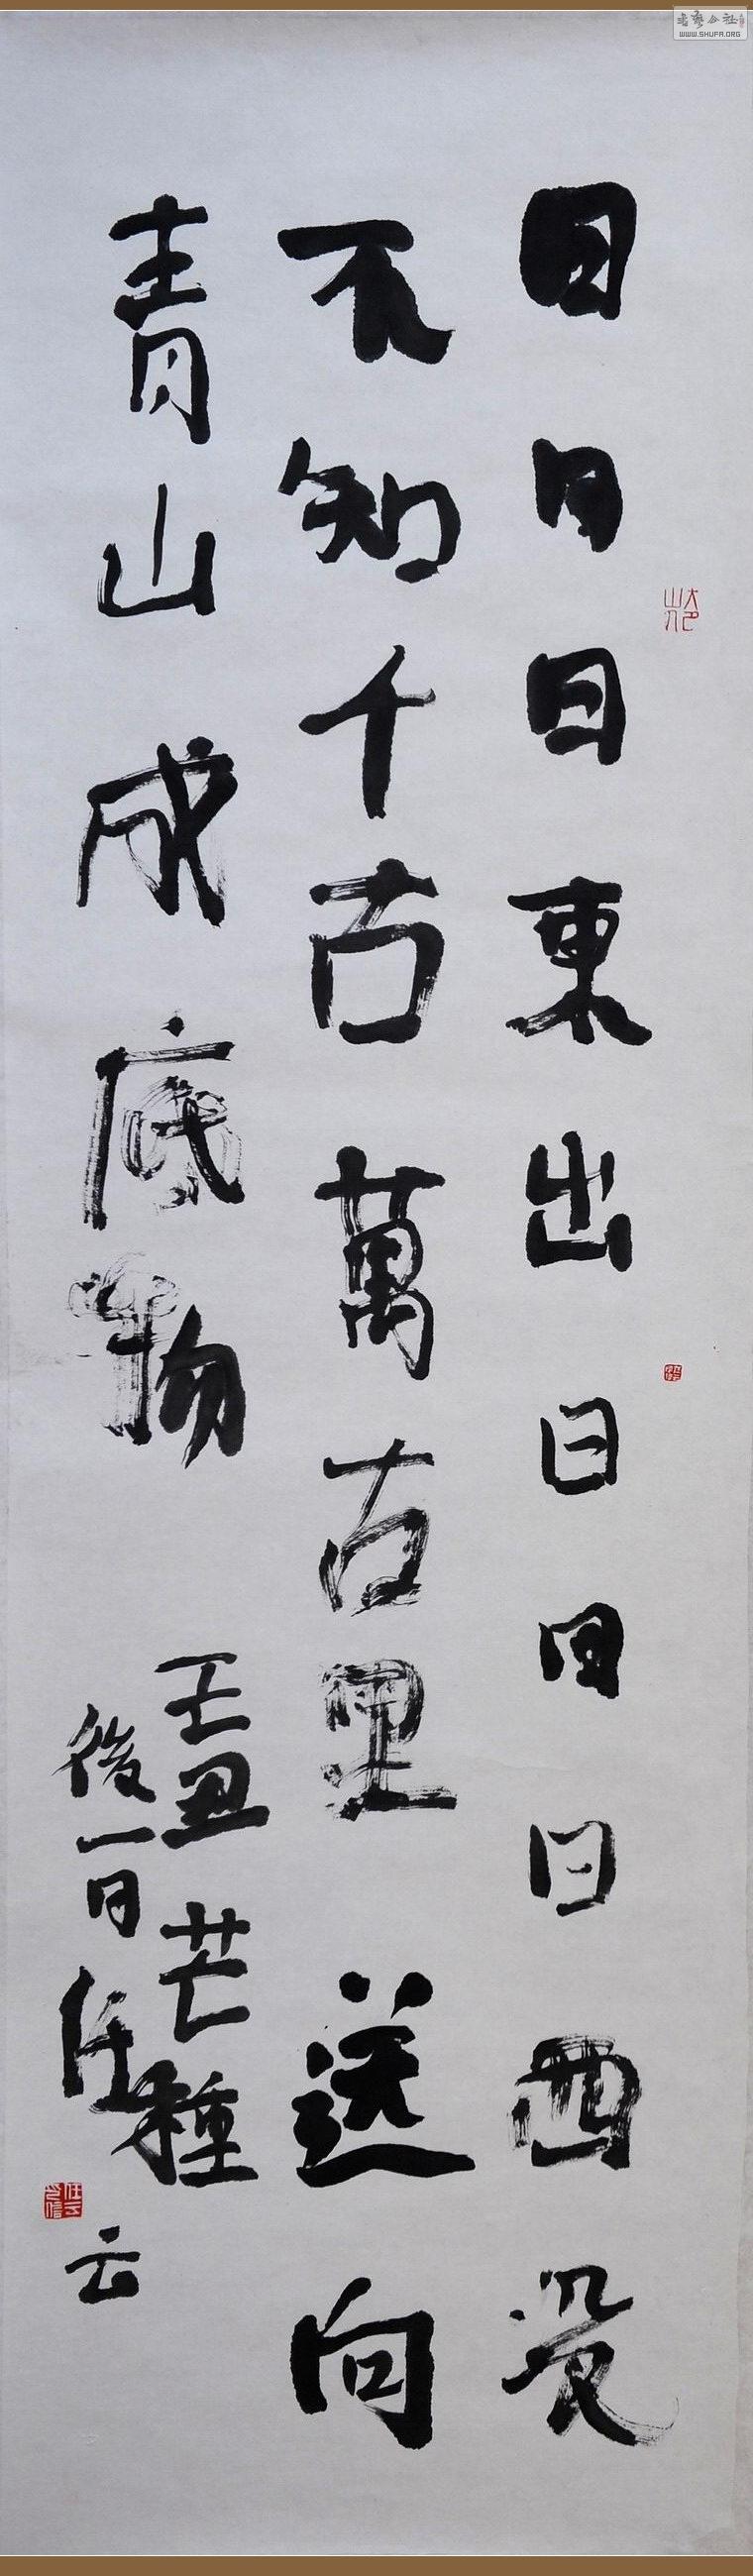 日日日東出日日日西没
不知千古萬古里送向
青山成底物
壬丑芒種
後一日任云
WWW.SHUFA.ORG